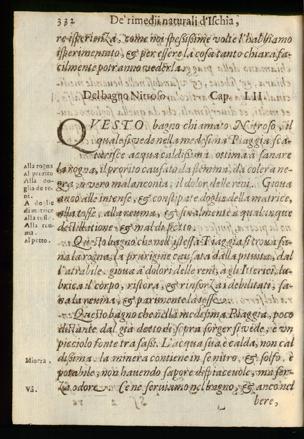 332 De' rimedij naturali d'Ischia,
re isperienza, come noi spessissime volte l'habbiamo
isperimentato, & per essere la cosa tanto chiara fa-
cilmente potranno vederla.
Del bagno Nitroso. Cap. LII.
QVESTO bagno chiamato Nitroso, il
quale si vede nella medesima Piaggia sca-
turisce acqua caldissima, ottima à sanare
Alla rogna
la rogna, il prorito causato da flemma, da colera ne-
gra, overo malanconia, il dolor delle reni. Giova
anco alle intense, & constipate doglie della matrice,
alla tosse, alla reuma, & finalmente à qualunque
destillatione, & mal di petto.
Al prorito
Alle do-
glie de re-
ni.
A doglie
di matrice
alla tosse.
Alla reu-
ma.
al petto.
Questo bagno che nell'istessa Piaggia si trova sa-
na la rogna, la prurigine causata dalla pituita, dal-
l'atrabile, giova a' dolori delle reni, a gli Isterici, lu-
brica il corpo, ristora, & rinforza i debilitati, sa-
na la reuma, & parimente la tosse.
Questo bagno che nella medesima Piaggia, poco
distante dal già detto di sopra sorger si vede, è un
picciolo fonte tra sassi. L'acqua sua è calda, non cal-
dissima. la minera contiene in se nitro, & solfo, è
Minera.
potabile, non havendo sapore dispiacevole, ma sen-
za odore. Ce ne serviamo nel bagno, & anco nel
bere,